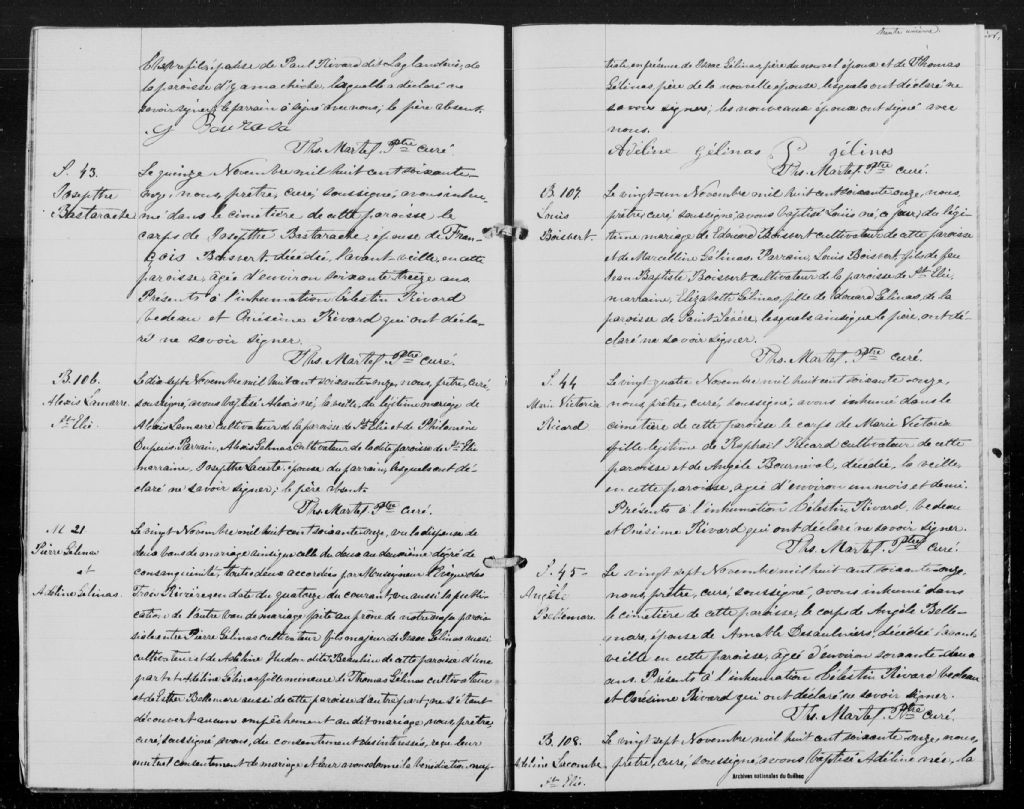 épouse de Paul Rivard dit Laglanderie, de
la paroisse d'Yamachiche lesquels a déclaré ne
savoir signer, le parrain a signé avec nous, le père absent.
Ths. Martel Ptre curé.
S. 43.
Josephte
Bastarache
Le quinze Novembre mil huit cent soixante-
onze, nous, prêtre, curé, soussigné, avons inhu-
mé dans le cimetière de cette paroisse le
corps de Josephte Bastarache, épouse de Fran-
çois Boisvert, décédée, l'avant veille, en cette
paroisse, agée d'environ soixante treize ans
Présents à l'inhumation Célestin Rivard
bedeau et Onisime Rivard qui ont décla-
ré ne savoir signer.
Ths. Martel Ptre curé.
B. 106.
Alexis Lamarre.
St. Elie.
Le dix sept Novembre mil huit cent soixante onze, nous, prêtre, curé
soussigné, avons baptisé Alexis né, la veille, du légitime mariage de
Alexis Lamarre cultivateur de la paroisse de St. Elie et de Philomène
Dupuis Parrain, Alexis Gelinas cultivateur de la dite paroisse de St. Elie
marraine, Josephte Lacerte, épouse du parrain, lesquels ont dé-
claré ne savoir signer; le père absent.
Ths. Martel Ptre curé.
M. 21
Pierre Gélinas
et
Adeline Gelinas.
Le vingt Novembre mil huit cent soixante onze, vu la dispense de
deux bans de mariage ainsi que celle du deux au deuxième dégré de
consanguinité, toutes deux accordées par Monseigneur l'Evêque des
Trois Rivières en date du quatorze du courant, vu aussi la publi-
cation de l'autre ban de mariage faite au prône de notre messe parois-
siale entre Pierre Gélinas cultivateur fils majeur de Isaac Gélinas aussi
cultivateur et de Adeline Hudon dite Beaulieu de cette paroisse d'une
part et Adeline Gélinas fille mineure de Thomas Gélinas cultivateur
et de Esther Bellemare aussi de cette paroisse d'autre part; ne s'étant
découvert aucun empêchement au dit mariage, nous, prêtre,
curé, soussigné avons, du consentement des intéressés, reçu leur
mutuel consentement de mariage et leur avons donné la bénédiction nup-
trente unième.
tiale en présence de Isaac Gélinas, père du nouvel époux et de Thomas
Gélinas, père de la nouvelle épouse, lesquels ont déclaré ne
savoir signer; les nouveaux époux ont signé avec
nous.
Adéline Gélinas P gélinas
Ths. Martel Ptre curé.
B. 107.
Louis
Boisvert.
Le vingt un Novembre mil huit cent soixante onze, nous,
prêtre, curé, soussigné, avons baptisé Louis né, ce jour, du légi-
time mariage de Edouard Boisvert cultivateur de cette paroisse
et de Marcelline Gélinas. Parrain, Louis Boisvert, fils de feu
Jean Baptiste Boisvert cultivateur de la paroisse de St. Elie,
marraine, Elizabeth Gélinas, fille de Edouard Gélinas, de la
paroisse de Saint Sévère, lesquels ainsi que le père, ont dé-
claré ne savoir signer.
Ths. Martel Ptre curé.
S. 44
Marie Victoria
Ricard
Le vingt quatre Novembre mil huit cent soixante onze,
nous, prêtre, curé, soussigné, avons inhumé dans le
cimetière de cette paroisse le corps de Marie Victoria
fille légitime de Raphaël Ricard cultivateur de cette
paroisse et de Angèle Bournival, décédée, la veille,
en cette paroisse, agée d'environ un mois et demi.
Présents à l'inhumation Célestin Rivard, bedeau
et Onésime Rivard qui ont déclaré ne savoir signer.
Ths. Martel Ptre curé.
S. 45
Angèle
Bellemare.
Le vingt sept Novembre mil huit cent soixante-onze,
nous, prêtre, curé, soussigné, avons inhumé dans
le cimetière de cette paroisse, le corps de Angèle Belle-
mare, épouse de Amable Desaulniers, décédée l'avant
veille en cette paroisse, agée d'environ soixante deux
ans. Présents à l'inhumation Célestin Rivard bedeau
et Onésime Rivard qui ont déclaré ne savoir signer.
Ths. Martel Ptre curé.
B. 108.
Adeline Lacombe.
St. Elie.
Le vingt sept Novembre mil huit cent soixante onze, nous,
prêtre, curé, soussigné, avons baptisé Adéline née, la
Archives nationales du Québec